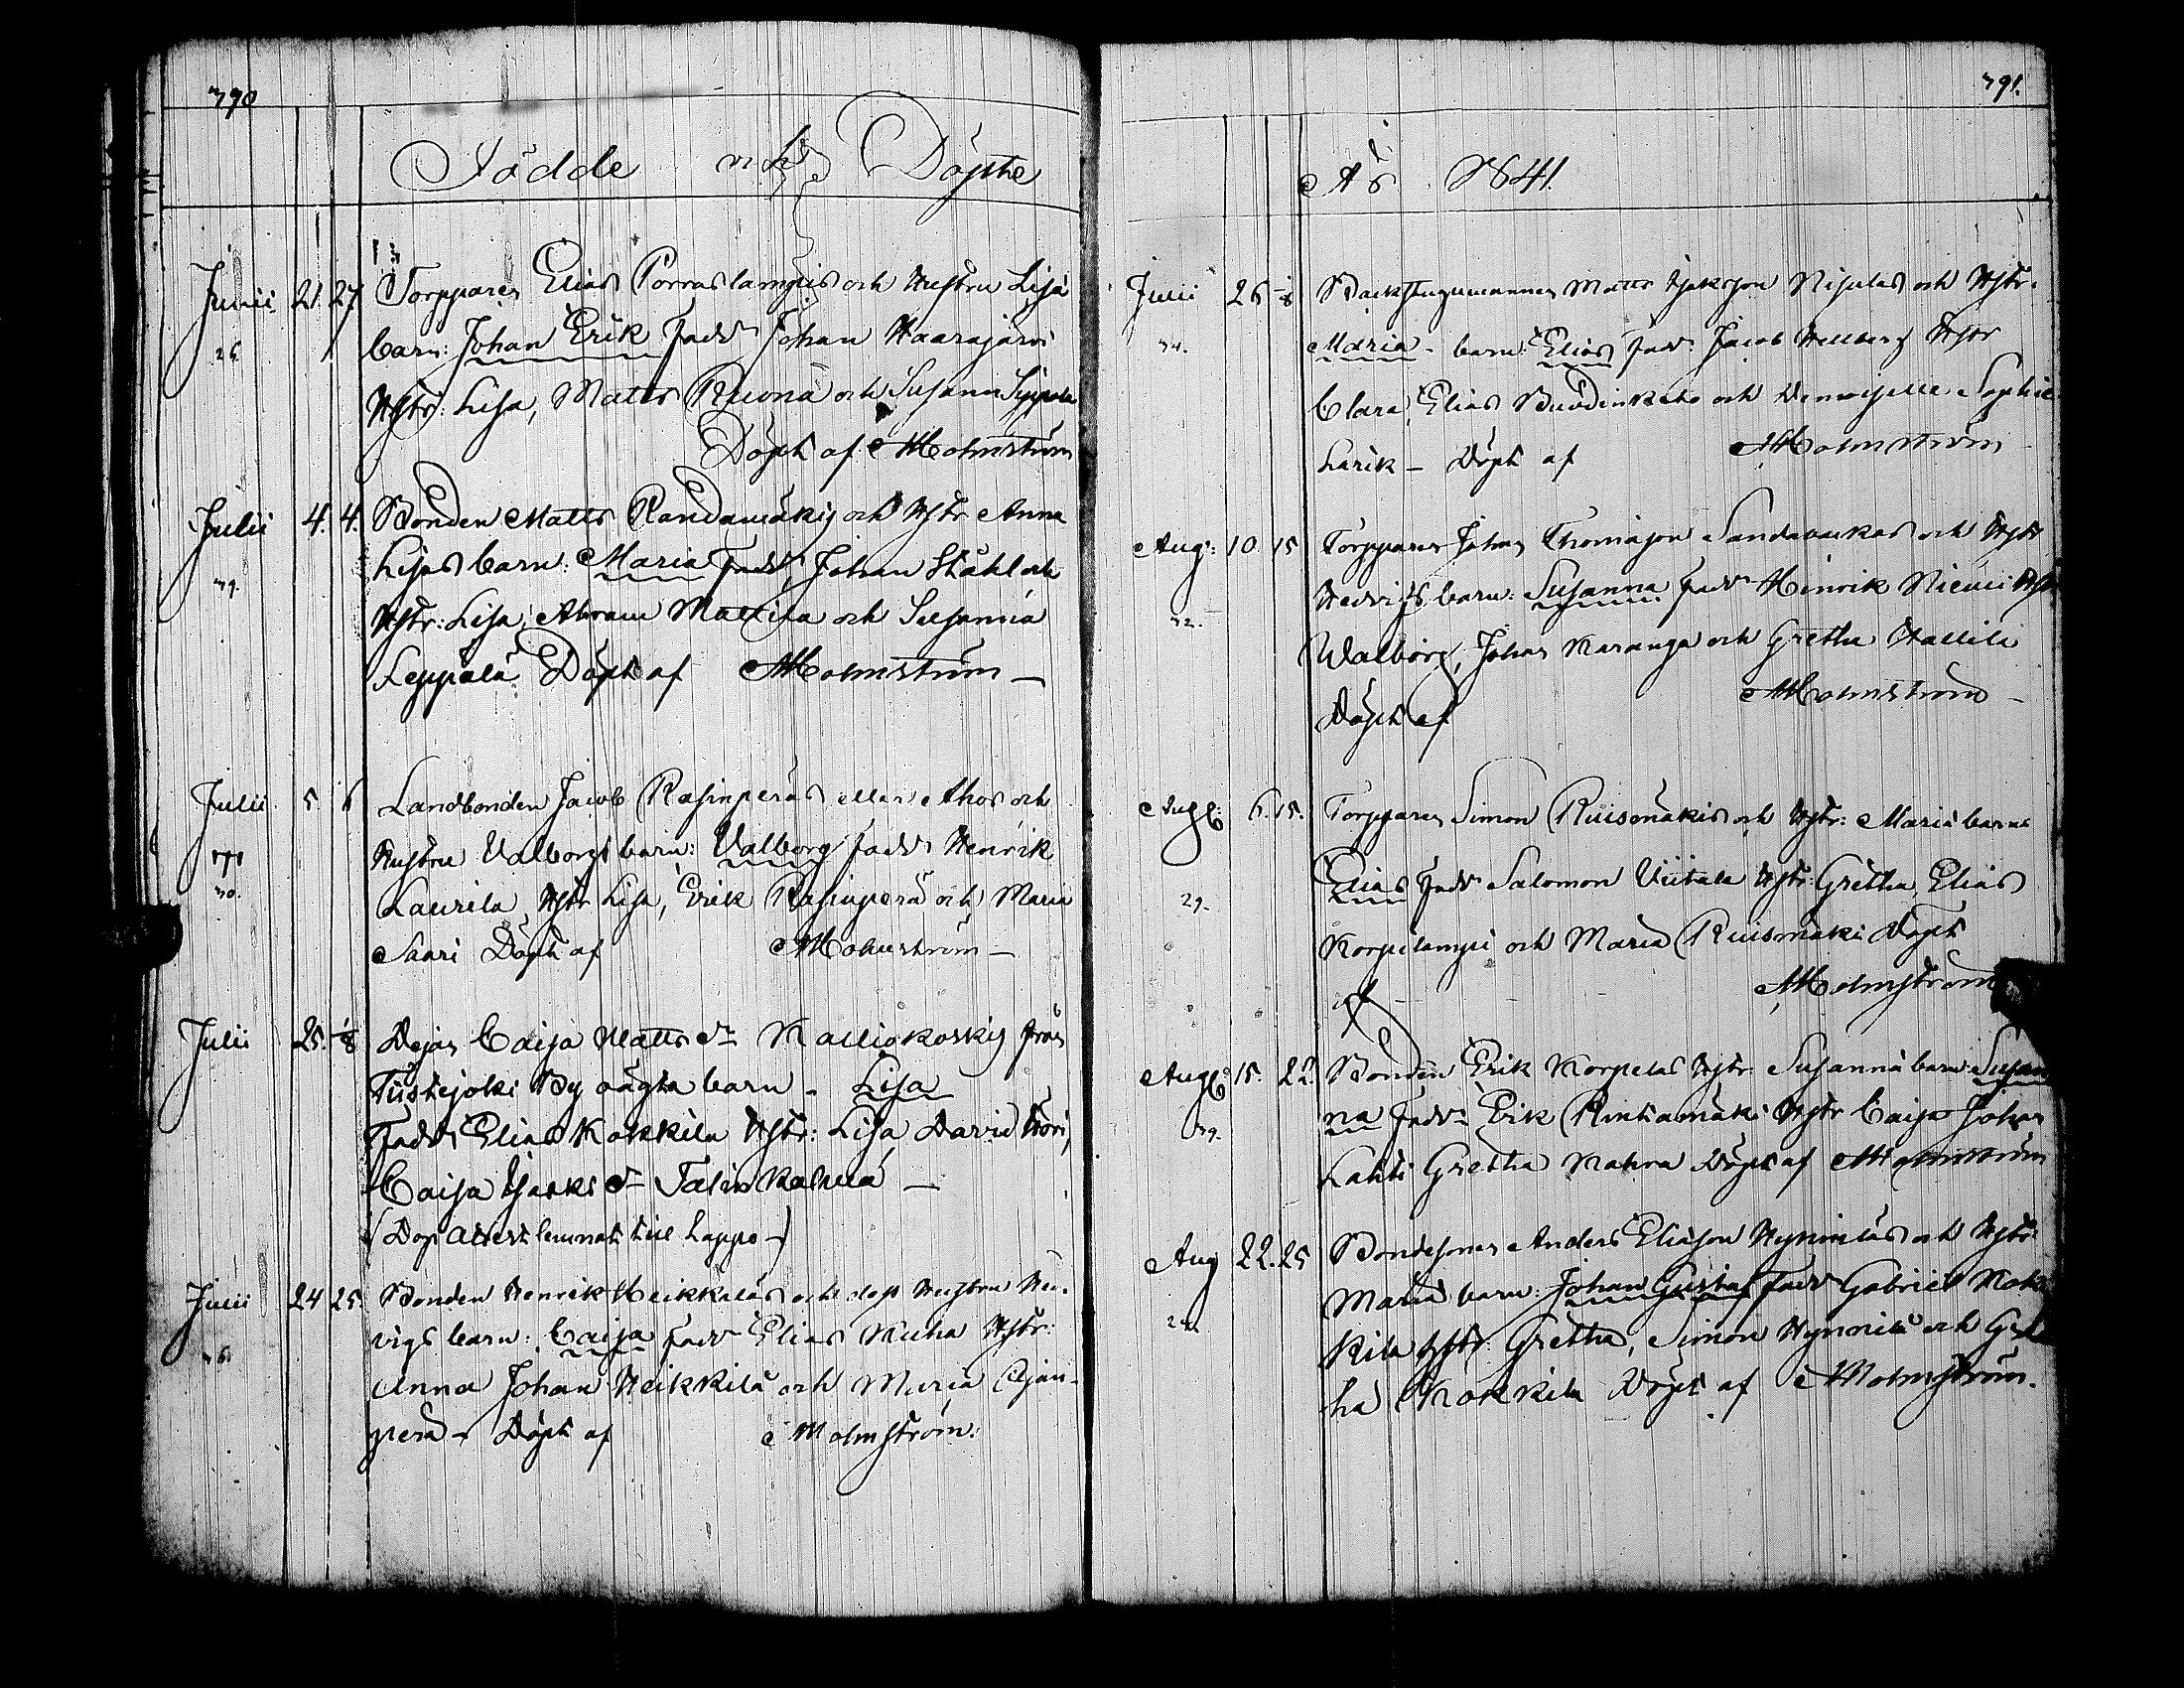 790
Födde och Döpte
Junii 21. 27 Torpparen Elias Porraslampis och Hustru Lisa
26. barn: Johan Erik Fadd: Johan Haarajärvi
Hstr: Lisa, Matts Ruona och Susanna Seppälä
Döpt af Holmström
Julii 4. 4. Bonden Matts Randamäkis och Hstr Anna
39. Lisas barn: Maria Fadd: Johan Ståhl och
Hstr: Lisa, Abram Mattila och Susanna
Leppälä Döpt af Holmström —
Julii 5. 6 Landbonden Jacob Rasinperäs eller Ahos och
Hustru Valborgs barn: Valborg Fadd: Henrik
30. Laurila Hstr Lisa, Erik Rasinperä och Maria
Saari Döpt af Holmström —
Julii 25. 1/8 Pigan Caisa Matts dr Kalliokoskis från
Tiistejoki By oägta barn - Lisa
Fadd: Elias Kokkila Hstr: Lisa David
Caisa Jaaks dr
(Dop Attest lemnat till Lappo —)
Julii 24 25. Bonden Henrik Heikkiläs och dess Hustru Hed-
36. vigs barn: Caisa Fadd: Elias Kuha Hstr:
Anna Johan Heikkilä och Maria Ojan-
perä - Döpt af Holmström.
791.
År 1841.
Julii 26 1/8 Backstugumannen Matts Jakson Nisulas och Hstr.
34. Maria - barn: Elias Fadd: Jacob Hellberg Hstr
Clara, Elias och Demoiselle Sophie
Döpt af Holmström
Aug: 10. 15 Torpparen Johan Thomasson Sandbackas och Hstr
32. Hedvigs barn: Susanna Fadd: Hinrik Niemi Hstr
Walborg, Johan Karanga och Gretha
Döpt af Holmström —
Aug: 6. 15. Torpparen Simon Ruismäkis och Hstr: Maria barn
29. Elias Fadd: Salomon Viitala Hstr: Gretha, Elias
Korpilampi och Maria Ruismäki Döpt
af Holmström
Aug: 15. 22. Bonden Erik Korpelas Hstr: Susanna barn: Susan-
39. na Fadd: Erik Rintamäki Hstr Caisa Johan
Lahti Gretha Kahra Döpt af Holmström
Aug 22. 25 Bondesonen Anders Eliasson Hynniläs och Hstr:
Maria barn: Johan Gustaf Fadd: Gabriel Kok-
kila Hstr: Gretha, Simon Hynnilä och Gret-
ha Kokkila Döpt af Holmström.